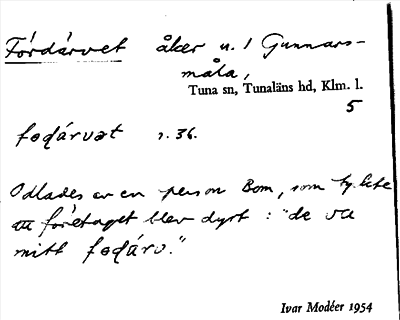 Fördärvet åker u. 1 Gunnars-
måla,
Tuna sn, Tunaläns hd, Klm. l.
5
foɖárvət r. 36.
Odlades av en person Bom, som
att företaget blev dyrt: "de va
mitt foɖárv."
Ivar Modéer 1954